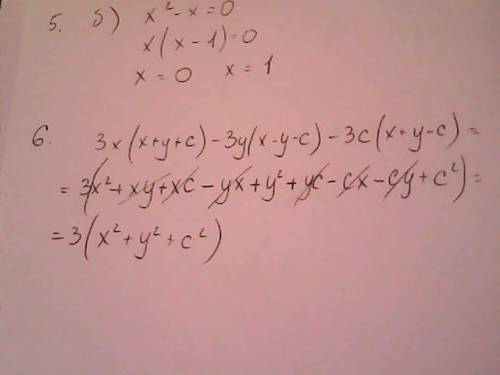 5. б) x² - x = 0
x(x - 1) = 0
x = 0 x = 1
6. 3x(x+y+c) - 3y(x-y-c) - 3c(x+y-c) =
= 3(x² + xy + xc - yx + y² + yc - cx - cy + c²) =
= 3(x² + y² + c²)